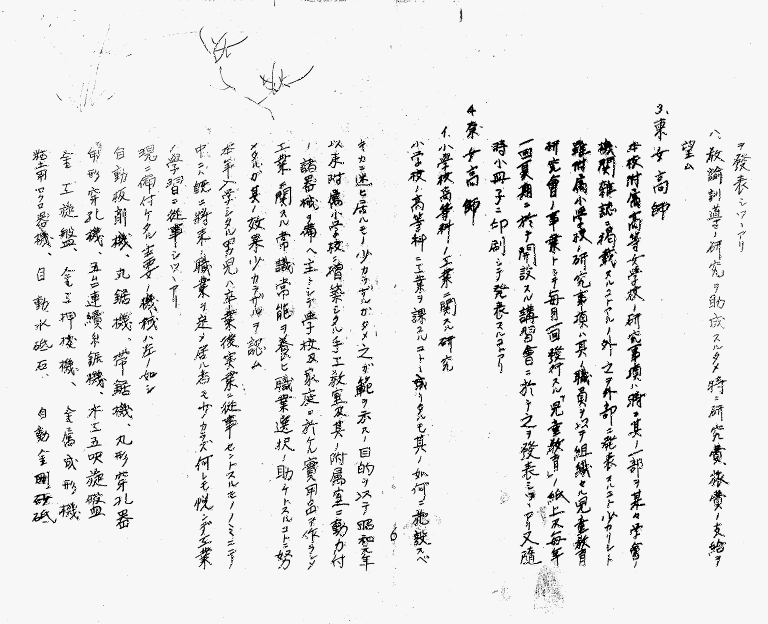 ヲ発表シツヽアリ
ハ、教諭訓導ノ研究ヲ助成スルタメ特ニ研究費、旅費ノ支給ヲ
望ム
3、東女高師
本校附属高等女学校ノ研究事項ハ時ニ其ノ一部ヲ某々学会ノ
機関雑誌ニ掲載スルコトアルノ外之ヲ外部ニ発表スルコト少カリシト
雖附属小学校ノ研究事項ハ其ノ職員ヲ以テ組織セル児童教育
研究会ノ事業トシテ毎月一回発行スル「児童教育」ノ紙上及毎年
一回夏期ニ於テ開設スル講習会ニ於テ之ヲ発表シツヽアリ又随
時小冊子ニ印刷シテ発表スルコトアリ
4、奈女高師
イ、小学校高等科ノ工業ニ関スル研究
小学校ノ高等科ニ工業ヲ課スルコトヽ成リタルモ其ノ如何ニ施設スベ
キカニ迷ヒ居ルモノ少カラザルガタメ之ガ範ヲ示スノ目的ヲ以テ昭和元年
以来附属小学校ニ増築シタル手工教室及其ノ附属室ニ動力付
ノ諸器械ヲ備ヘ主トシテ学校及家庭ニ於ケル実用品ヲ作ラシメ
工業ニ関スル常識常能ヲ養ヒ職業選択ノ助ケトスルコトニ努
メタルガ其ノ效果少カラザルヲ認ム
本年入学シタル男児ハ卒業後実業ニ従事セントスルモノノミニテ
中ニハ既ニ将来ノ職業ヲ定メ居ル者モ少カラズ何レモ悦ンデ工業
ノ学習ニ従事シツヽアリ
現ニ備付ケタル主要ノ機械ハ左ノ如シ
自動板削機、丸鋸機、帯鋸機、丸形穿孔器
角形穿孔機、五二連続糸鋸機、木工五呎旋盤
金工旋盤、金工押抜機、金属成形機
自動水砥石、自動金剛砂砥